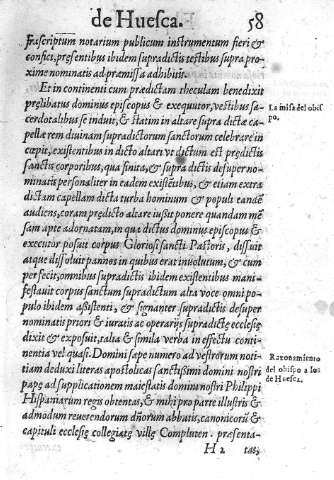 de Huesca. 58
frascriptum notarium publicum instrumentum fieri &
confici, presentibus ibidem supradictis testibus supra pro
xime nominatis ad præmissa adhibitis.
Et in continenti cum prædictam theculam benedixit
pręlibatus dominus episcopus & exequutor, vestibus sa-
cerdotalibus se induit, & statim in altare supra dictæ ca-
pellæ rem diuinam supradictorum sanctorum celebrare in
cœpit, existentibus in dicto altari vt dictum est prędictis
sanctis corporibus, qua finita, & supra dictis desuper no-
minatis personaliter in eadem existētibus, & etiam extra
dictam capellam dicta turba hominum & populi eandē
audiens, coram prędicto altare iussit ponere quandam mē
sam apte adornatam, in qua dictus dominus episcopus &
executor posuit corpus Gloriosi sancti Pastoris, dissuit
atque dissoluit pannos in quibus erat inuolutum, & cum
per fecit, omnibus supradictis ibidem existentibus mani-
festauit corpus sanctum supradictum alta voce omni po-
pulo ibidem asistenti, & signanter supradictis desuper
nominatis priori & iuratis ac operarijs supradictę ecclesię
dixit & exposuit, talia & similia verba in effectu conti-
nentia vel quasi. Domini sæpe numero ad vestrorum noti-
tiam deduxi literas apostolicas sanctissimi domini nostri
papę ad supplicationem maiestatis domini nostri Philippi
Hispaniarum regis obtentas, & mihi pro parte illustris &
admodum reuerendorum dñorum abbatis, canonicorū &
capituli ecclesię collegiatę villę Compluten. presenta-
H 2 tas,
La misa del obis
po.
Razonamiento
del obispo a los
de Huesca.